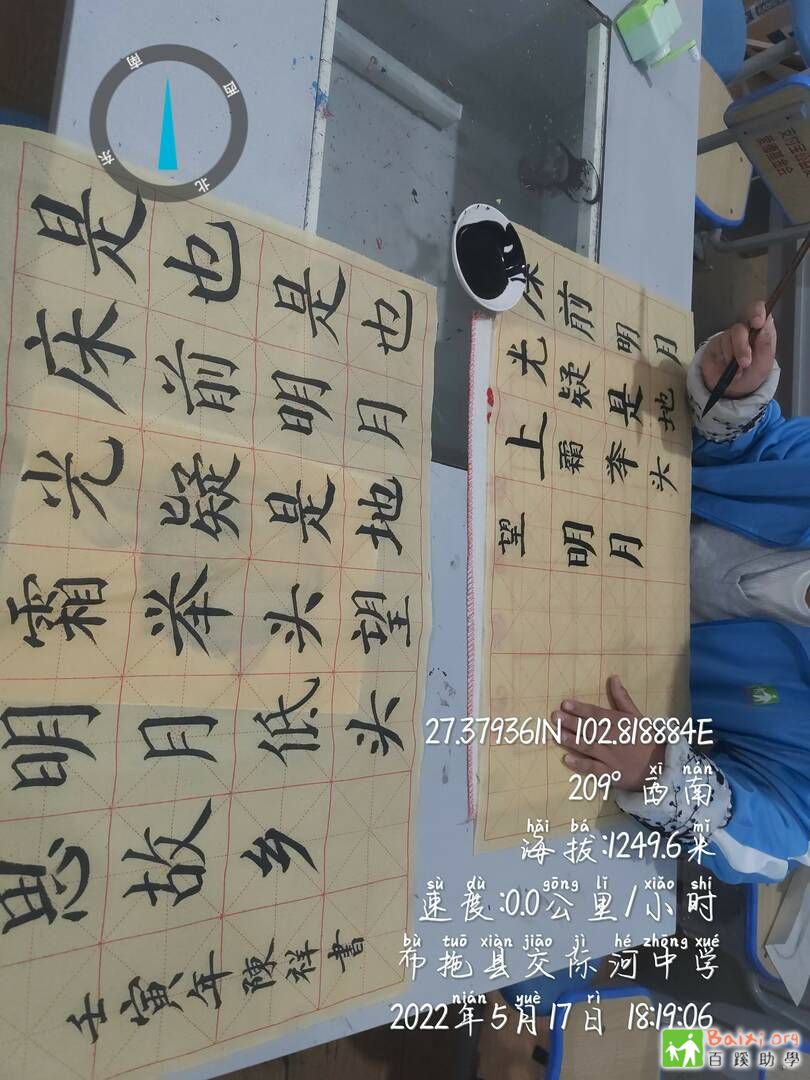 是也是也
床前明月
光疑是地
霜举头望
明月低头
思故乡
壬寅年陳祥書
床前明月
光疑是地
上霜举头
望明月
南
西
东
北
27.379361N 102.818884E
xī nán
209° 西南
hǎi bá mǐ
海拔:1249.6米
sù dù gōng lǐ xiǎo shí
速度:0.0公里/小时
bù tuō xiàn jiāo jì hé zhōng xué
布拖县交际河中学
nián yuè rì
2022年5月17日 18:19:06
Baixi.org
百蹊助學